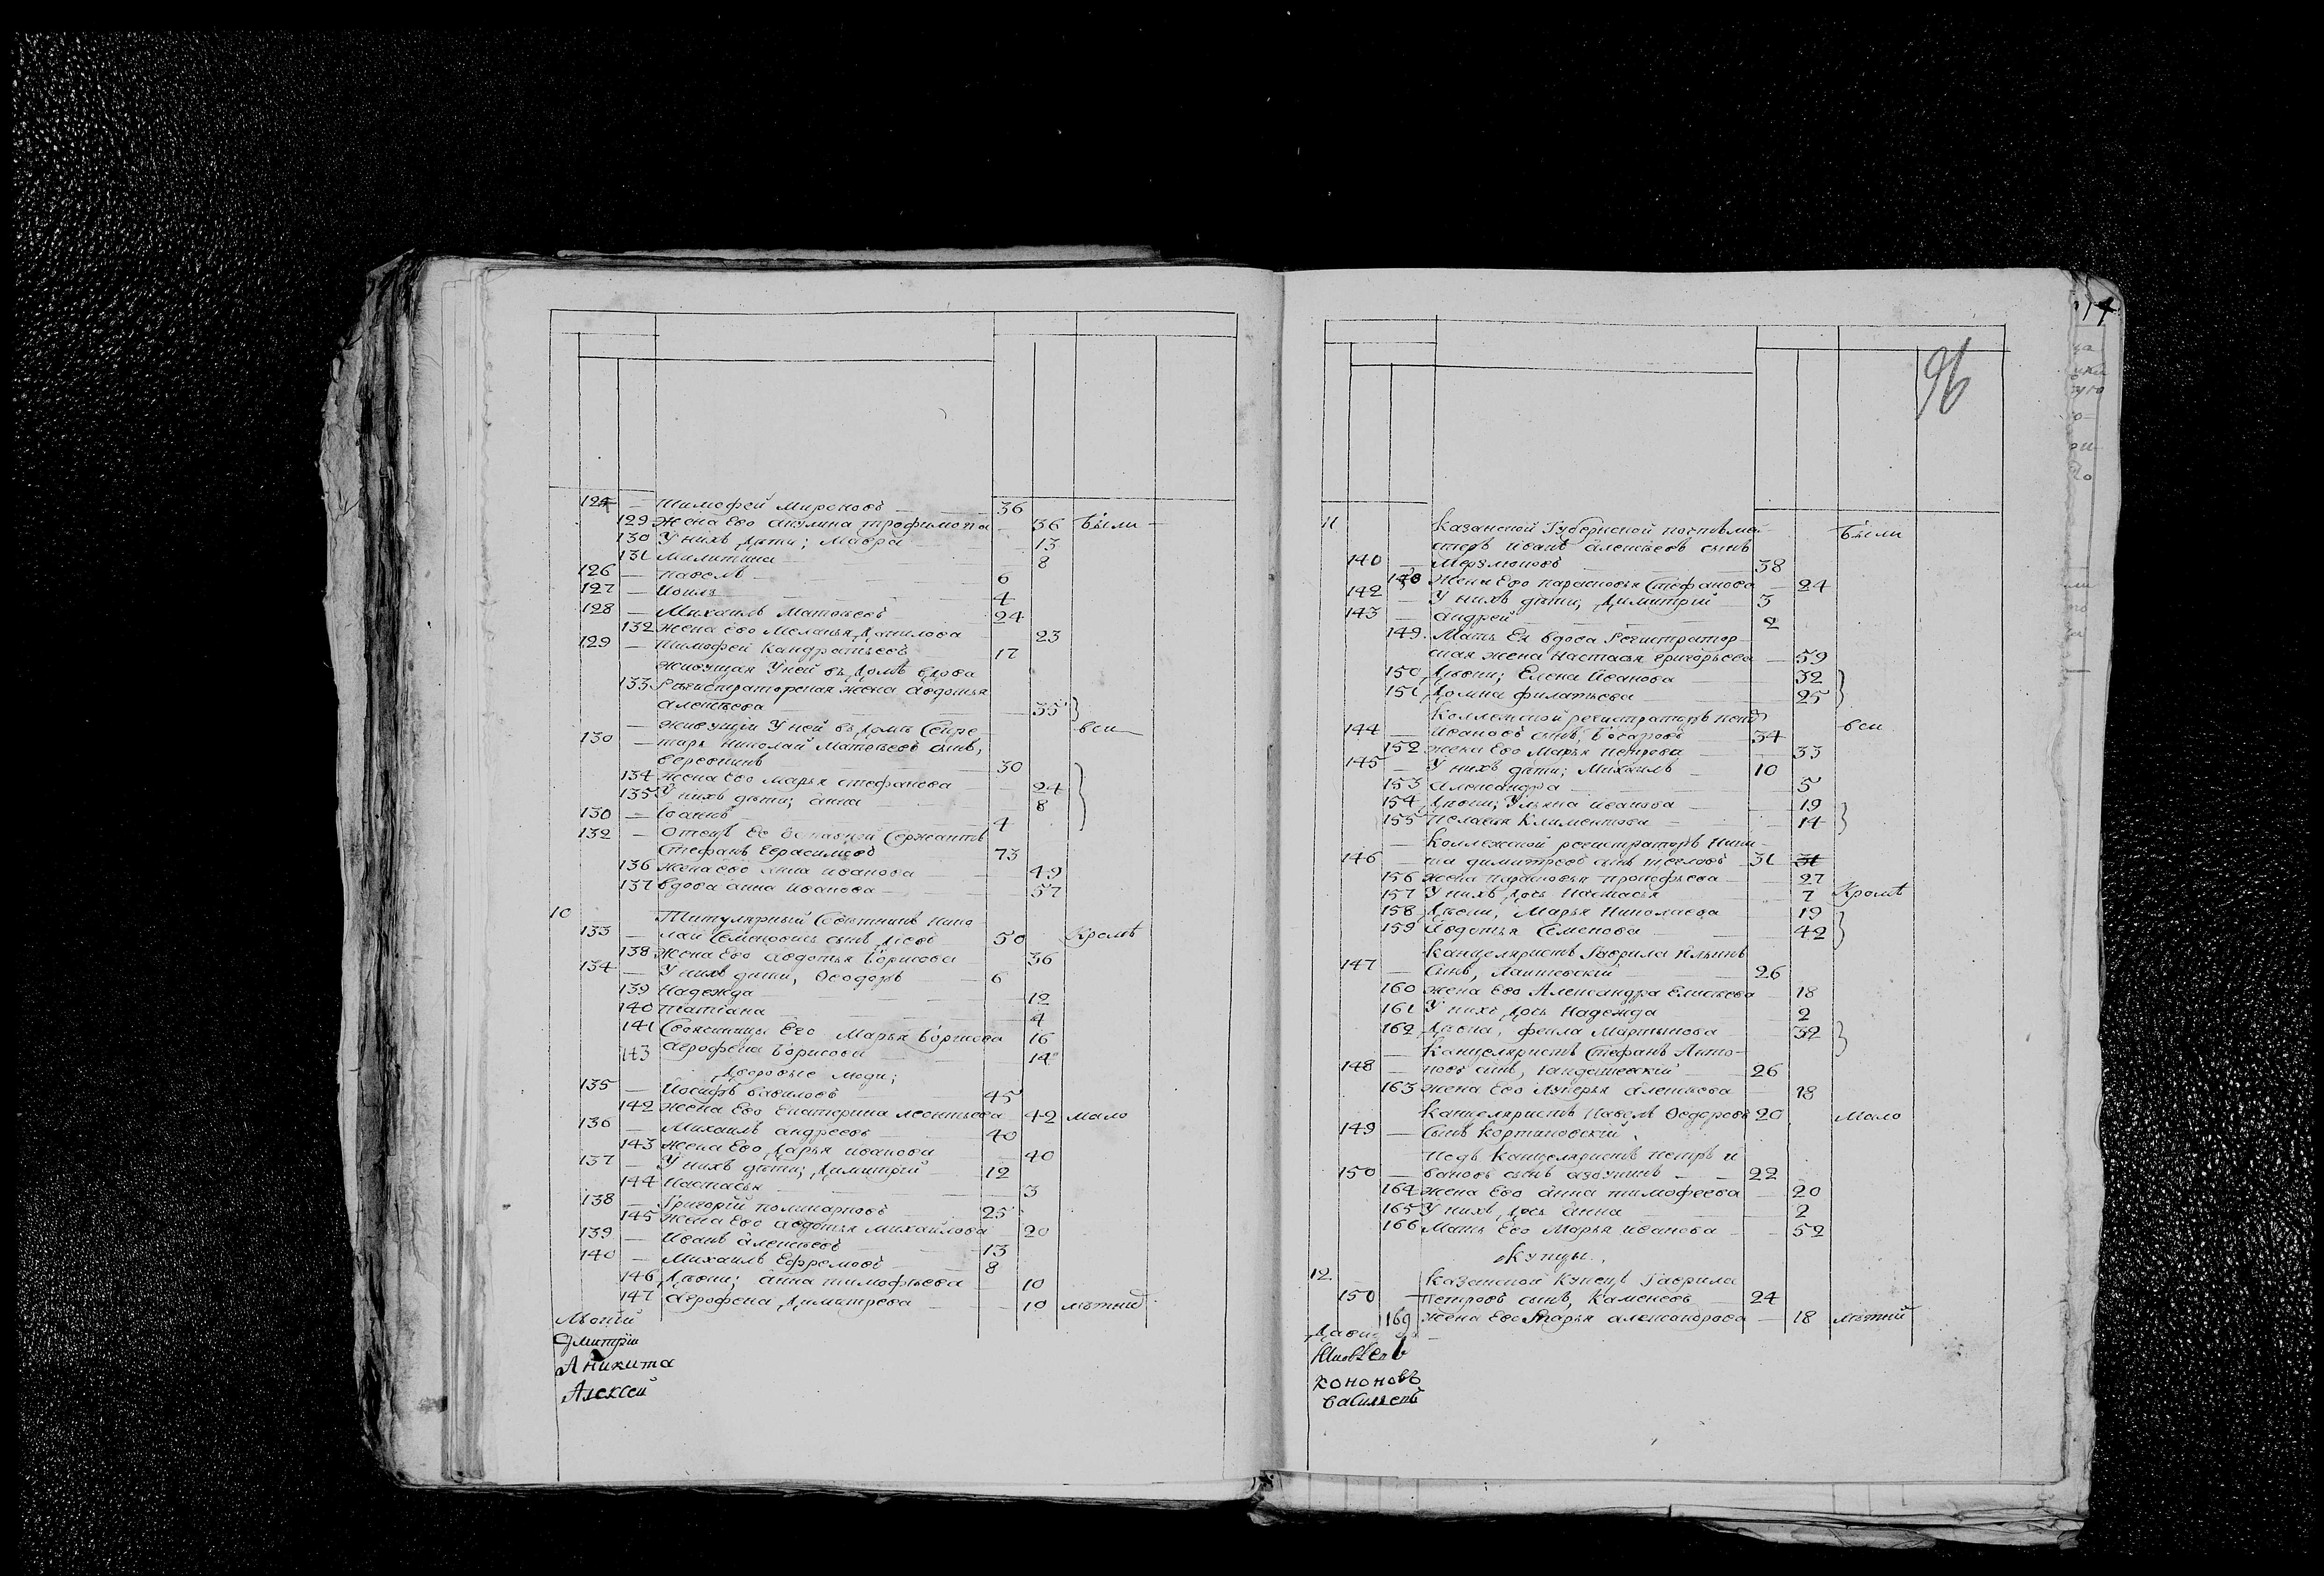 124 — Тимофей Мироновъ — 36
129 Жена Ево Акулина Трофимова — 36 Были —
130 У нихъ дети; Мавра — 13
131 Милитина — 8
126 — Павелъ — 6
127 — Иоиль — 4
128 — Михаилъ Матвѣевъ — 24
132 Жена Ево Меланья Данилова — 23
129 — Тимофей Кандратьевъ 17
Живущая У ней въ домѣ вдова
133 Регистраторская жена Авдотья
Алексѣева — 35
— Живущия У ней въ домѣ Секре
130 — тарь Николай Матвѣевъ сынъ, вси —
30
134 Жена Ево Марья Стефанова — 24
135 У нихъ дѣти; Анна — 8
130 — Iоаннъ — 4
132 — Отецъ Ее Сержантъ
Стефанъ Герасимовъ 73
136 Жена ево Анна Иванова — 49
137 Вдова Анна Иванова — 57
10 Титулярный Советникъ Нико
133 — лай Семеновичь сынъ 50 Кромѣ
138 Жена Ево Авдотья Борисова — 36
134 — У нихъ дети, Ѳеодоръ — 6
139 Надежда — 12
140 Татiана — 4
141 Своясиницы Его Марья Борисова 16
143 Агрофена Борисова 14
Дворовые люди;
135 — Иосифъ Вавиловъ — 45
142 Жена Ево Екатерина Леонтьева 42 мало
136 — Михаилъ Андреевъ — 40
143 Жена Ево Дарья Иванова — 40
137 — У нихъ дѣти; Димитрий 12
144 Настасья — 3
138 — Григорiй Поликарповъ 25
145 Жена Ево Авдотья Михайлова 20
139 — Иванъ Алексѣевъ — 13
140 — Михаилъ Ефремовъ — 8
146 Дѣвки; Анна Тимофѣева — 10
147 Агрофена Димитрева — 10 лѣтнии
Дмитрiи
Аникита
Алексеи
96
11 Казанской Губернской постъмей
стеръ Иванъ Алексѣевъ сынъ Были
140 — 38
148 Жена Ево Парасковья Стефанова — 24
142 — У нихъ дѣти; Димитрий — 3
143 — Андрей — 2
149 Мать Ея вдова Регистратор
ская жена Настасья Григорьева — 59
150 Дѣвки; Елена Иванова — 32
151 Домна Филатьева — 25
Коллежской регистраторъ
144 — Ивановъ сынъ, 34 вси
152 Жена Ево Марья Петрова — 33
145 — У нихъ дѣти; Михаилъ — 10
153 Александра — 5
154 Дѣвки; Ульяна Иванова — 19
155 Пелагея Климентова — 14
— Коллежской регистраторъ Ники
146 — та Димитреевъ сынъ 31 31
156 Жена Парасковья Прокофьева — 27
157 У нихъ дочь Настасья — 7 Кромѣ
158 Дѣвки, Марья Николаева — 19
159 Авдотья Семенова — 42
Канцеляристъ Гаврила Ильинъ
147 — Сынъ, Лаишевскiй — 26
160 Жена Ево Александра Елисѣева — 18
161 У нихъ дочь Надежда — 2
162 Дѣвка, Фекла Мартынова — 32
— Канцеляристъ Стефанъ Анто-
148 — новъ сынъ, 26
163 Жена Ево Лукерья Алексѣева — 18
Канцеляристъ Павелъ Ѳедоровъ 20 Мало
149 — Сынъ
Подъ Канцеляристъ Петръ И
150 — вановъ сынъ 22
164 Жена Ево Анна Тимофеева — 20
165 У нихъ дочь Анна — 2
166 Мать Ево Марья Иванова — 52
Купцы.
12. Казанской Купецъ Гаврила
150 — Петровъ сынъ, Каменевъ — 24
169 Жена Ево Марья Александрова — 18 лѣтнии
Кононовъ
Василевъ